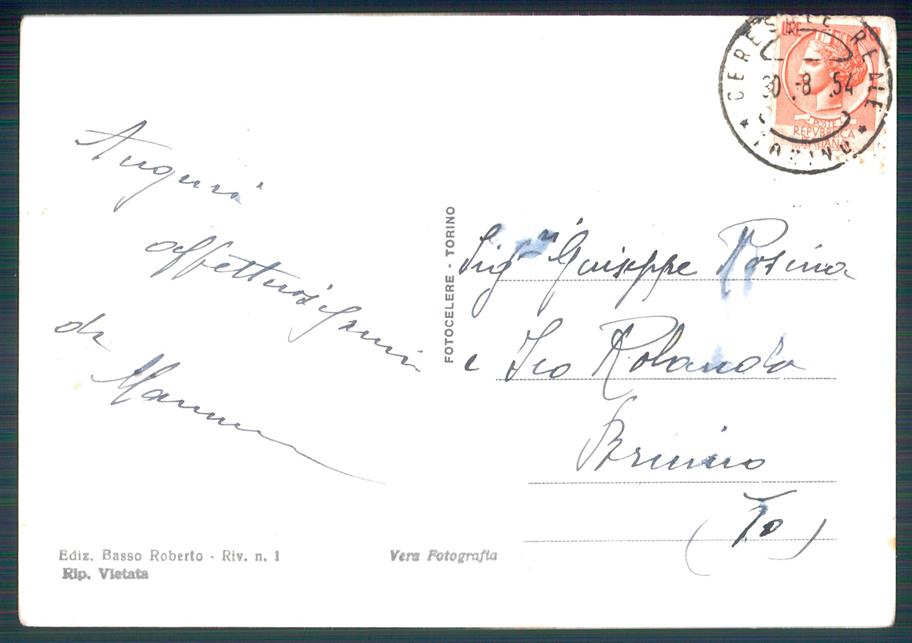 Auguri
affettuosissimi
da
LIRE 10
CERESOLE REALE
30 -8 .54
* TORINO *
POSTE
REPVBBLICA
ITALIANA
FOTOCELERE - TORINO
Sigri Giuseppe Rosina
e Iva Rolando
Bruino
(To)
Ediz. Basso Roberto - Riv. n. 1
Rip. Vietata
Vera Fotografia